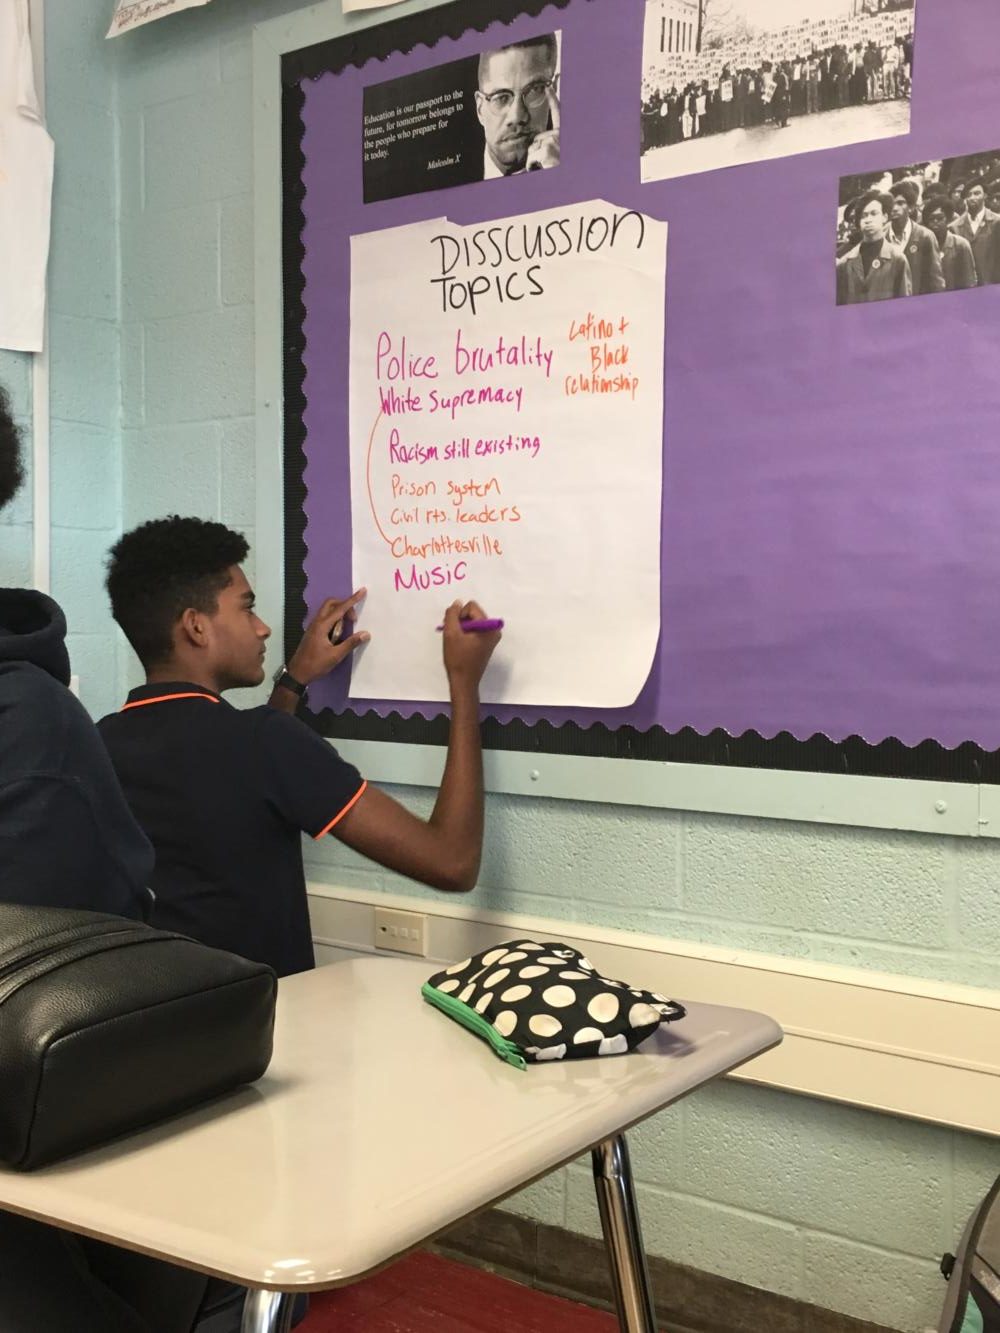 Education is our passport to the
future, for tomorrow belongs to
the people who prepare for
it today.
Malcolm X
DISSCUSSION
TOPICS
Police brutality
White Supremacy
Racism still existing
Prison system
Civil rts. leaders
Charlottesville
Music
Latino +
Black
relationship